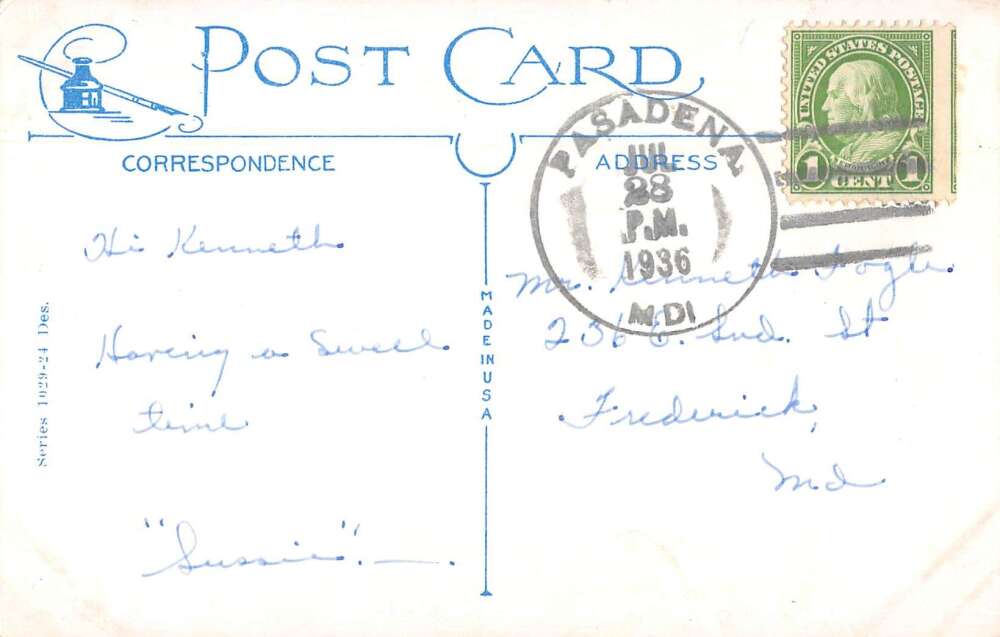 POST CARD
CORRESPONDENCE
ADDRESS
Hi Kenneth
Having a Swell
time
"Sussie".
Series 1029-24 Des.
MADE IN USA
PASADENA,
JUL
28
P.M.
1936
MD
UNITED STATES POSTAGE
FRANKLIN
1 CENT 1
Mr. Kenneth Fogle
236 E. 2nd. St
Frederick,
Md